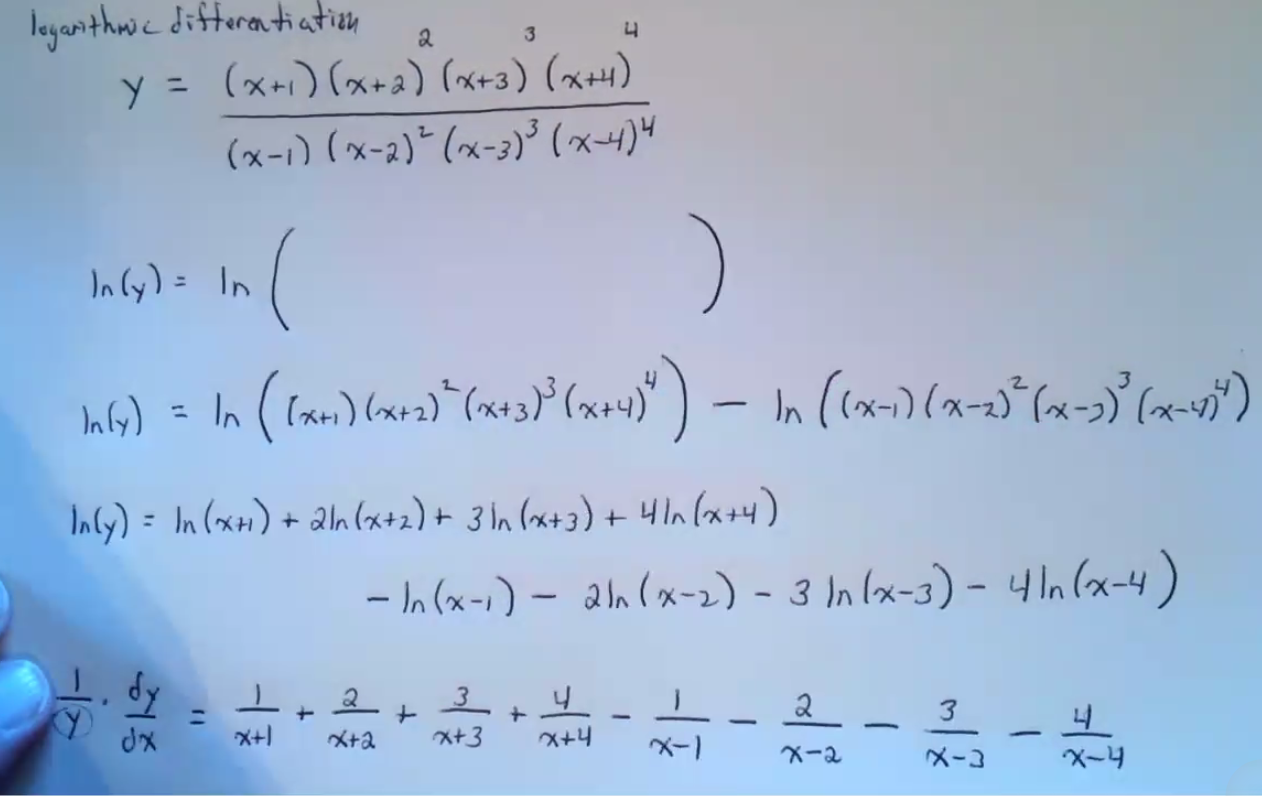 logarithmic differentiation
y = (x+1)(x+2)²(x+3)³(x+4)⁴ / (x-1)(x-2)²(x-3)³(x-4)⁴
ln(y) = ln ( )
ln(y) = ln((x+1)(x+2)²(x+3)³(x+4)⁴) - ln((x-1)(x-2)²(x-3)³(x-4)⁴)
ln(y) = ln(x+1) + 2ln(x+2) + 3ln(x+3) + 4ln(x+4)
- ln(x-1) - 2ln(x-2) - 3ln(x-3) - 4ln(x-4)
1/y · dy/dx = 1/x+1 + 2/x+2 + 3/x+3 + 4/x+4 - 1/x-1 - 2/x-2 - 3/x-3 - 4/x-4